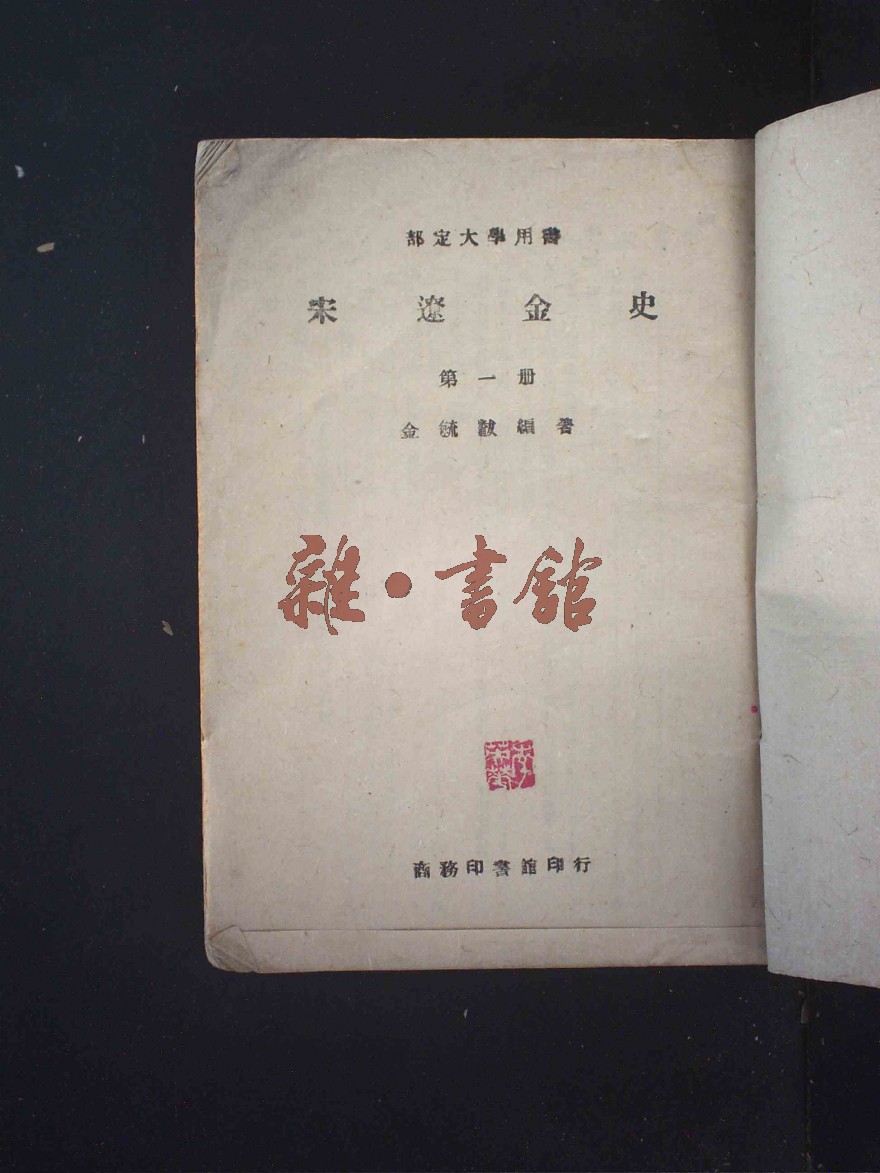 部定大學用書
宋遼金史
第一册
金毓黻編著
雜·書館
商務印書館印行